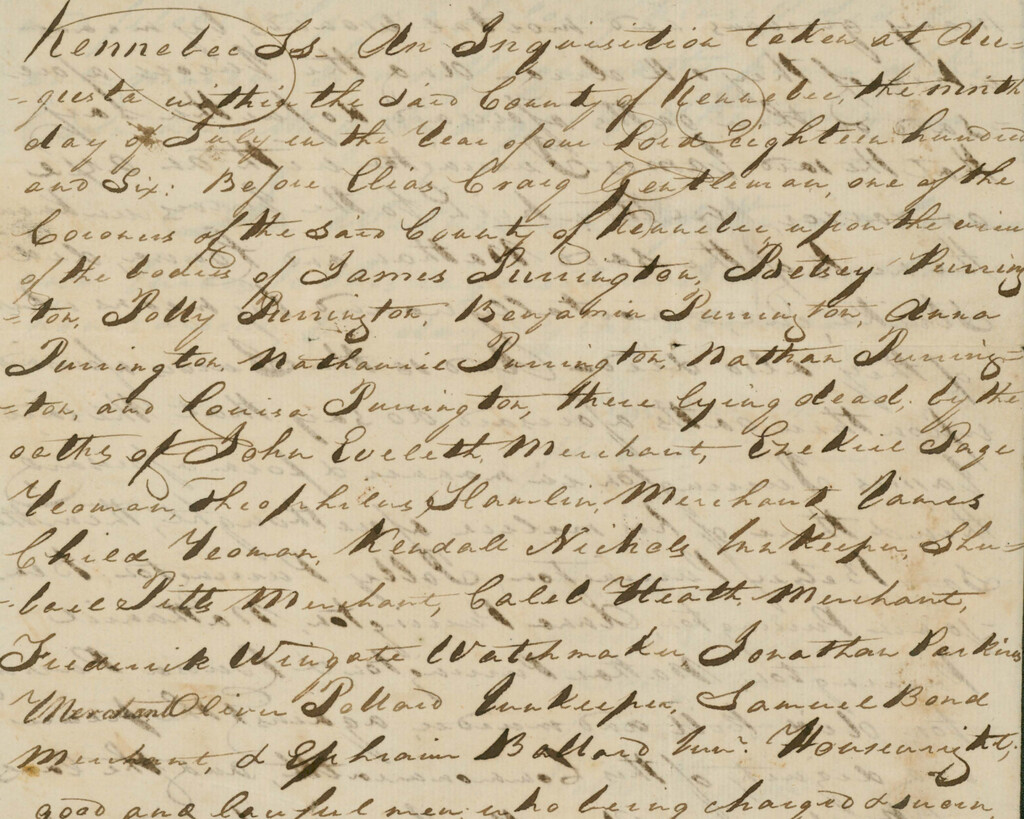 Kennebec Ss. An Inquisition taken at Au=
=gusta within the said County of Kennebec, the ninth
day of July in the Year of our Lord Eighteen hundred
and Six: Before Elias Craig Gentleman, one of the
Coroners of the said County of Kennebec, upon the view
of the bodies of James Purrington, Betsey Purring
=ton, Polly Purrington, Benjamin Purrington, Anna
Purrington, Nathaniel Purrington, Nathan Purring=
=ton, and Louisa Purrington, there lying dead, by the
oaths of John Eveleth, Merchant, Ezekiel Page
Yeoman, Theophilus Hamlin, Merchant, James
Child Yeoman, Kendall Nichols Innkeeper, Shu=
=bael Pitts Merchant, Caleb Heath, Merchant,
Frederick Wingate Watchmaker, Jonathan Perkins
Merchant Oliver Pollard Innkeeper, Samuel Bond
Merchant, & Ephraim Ballard Junr. Housewright,
good and lawful men who being charged & sworn